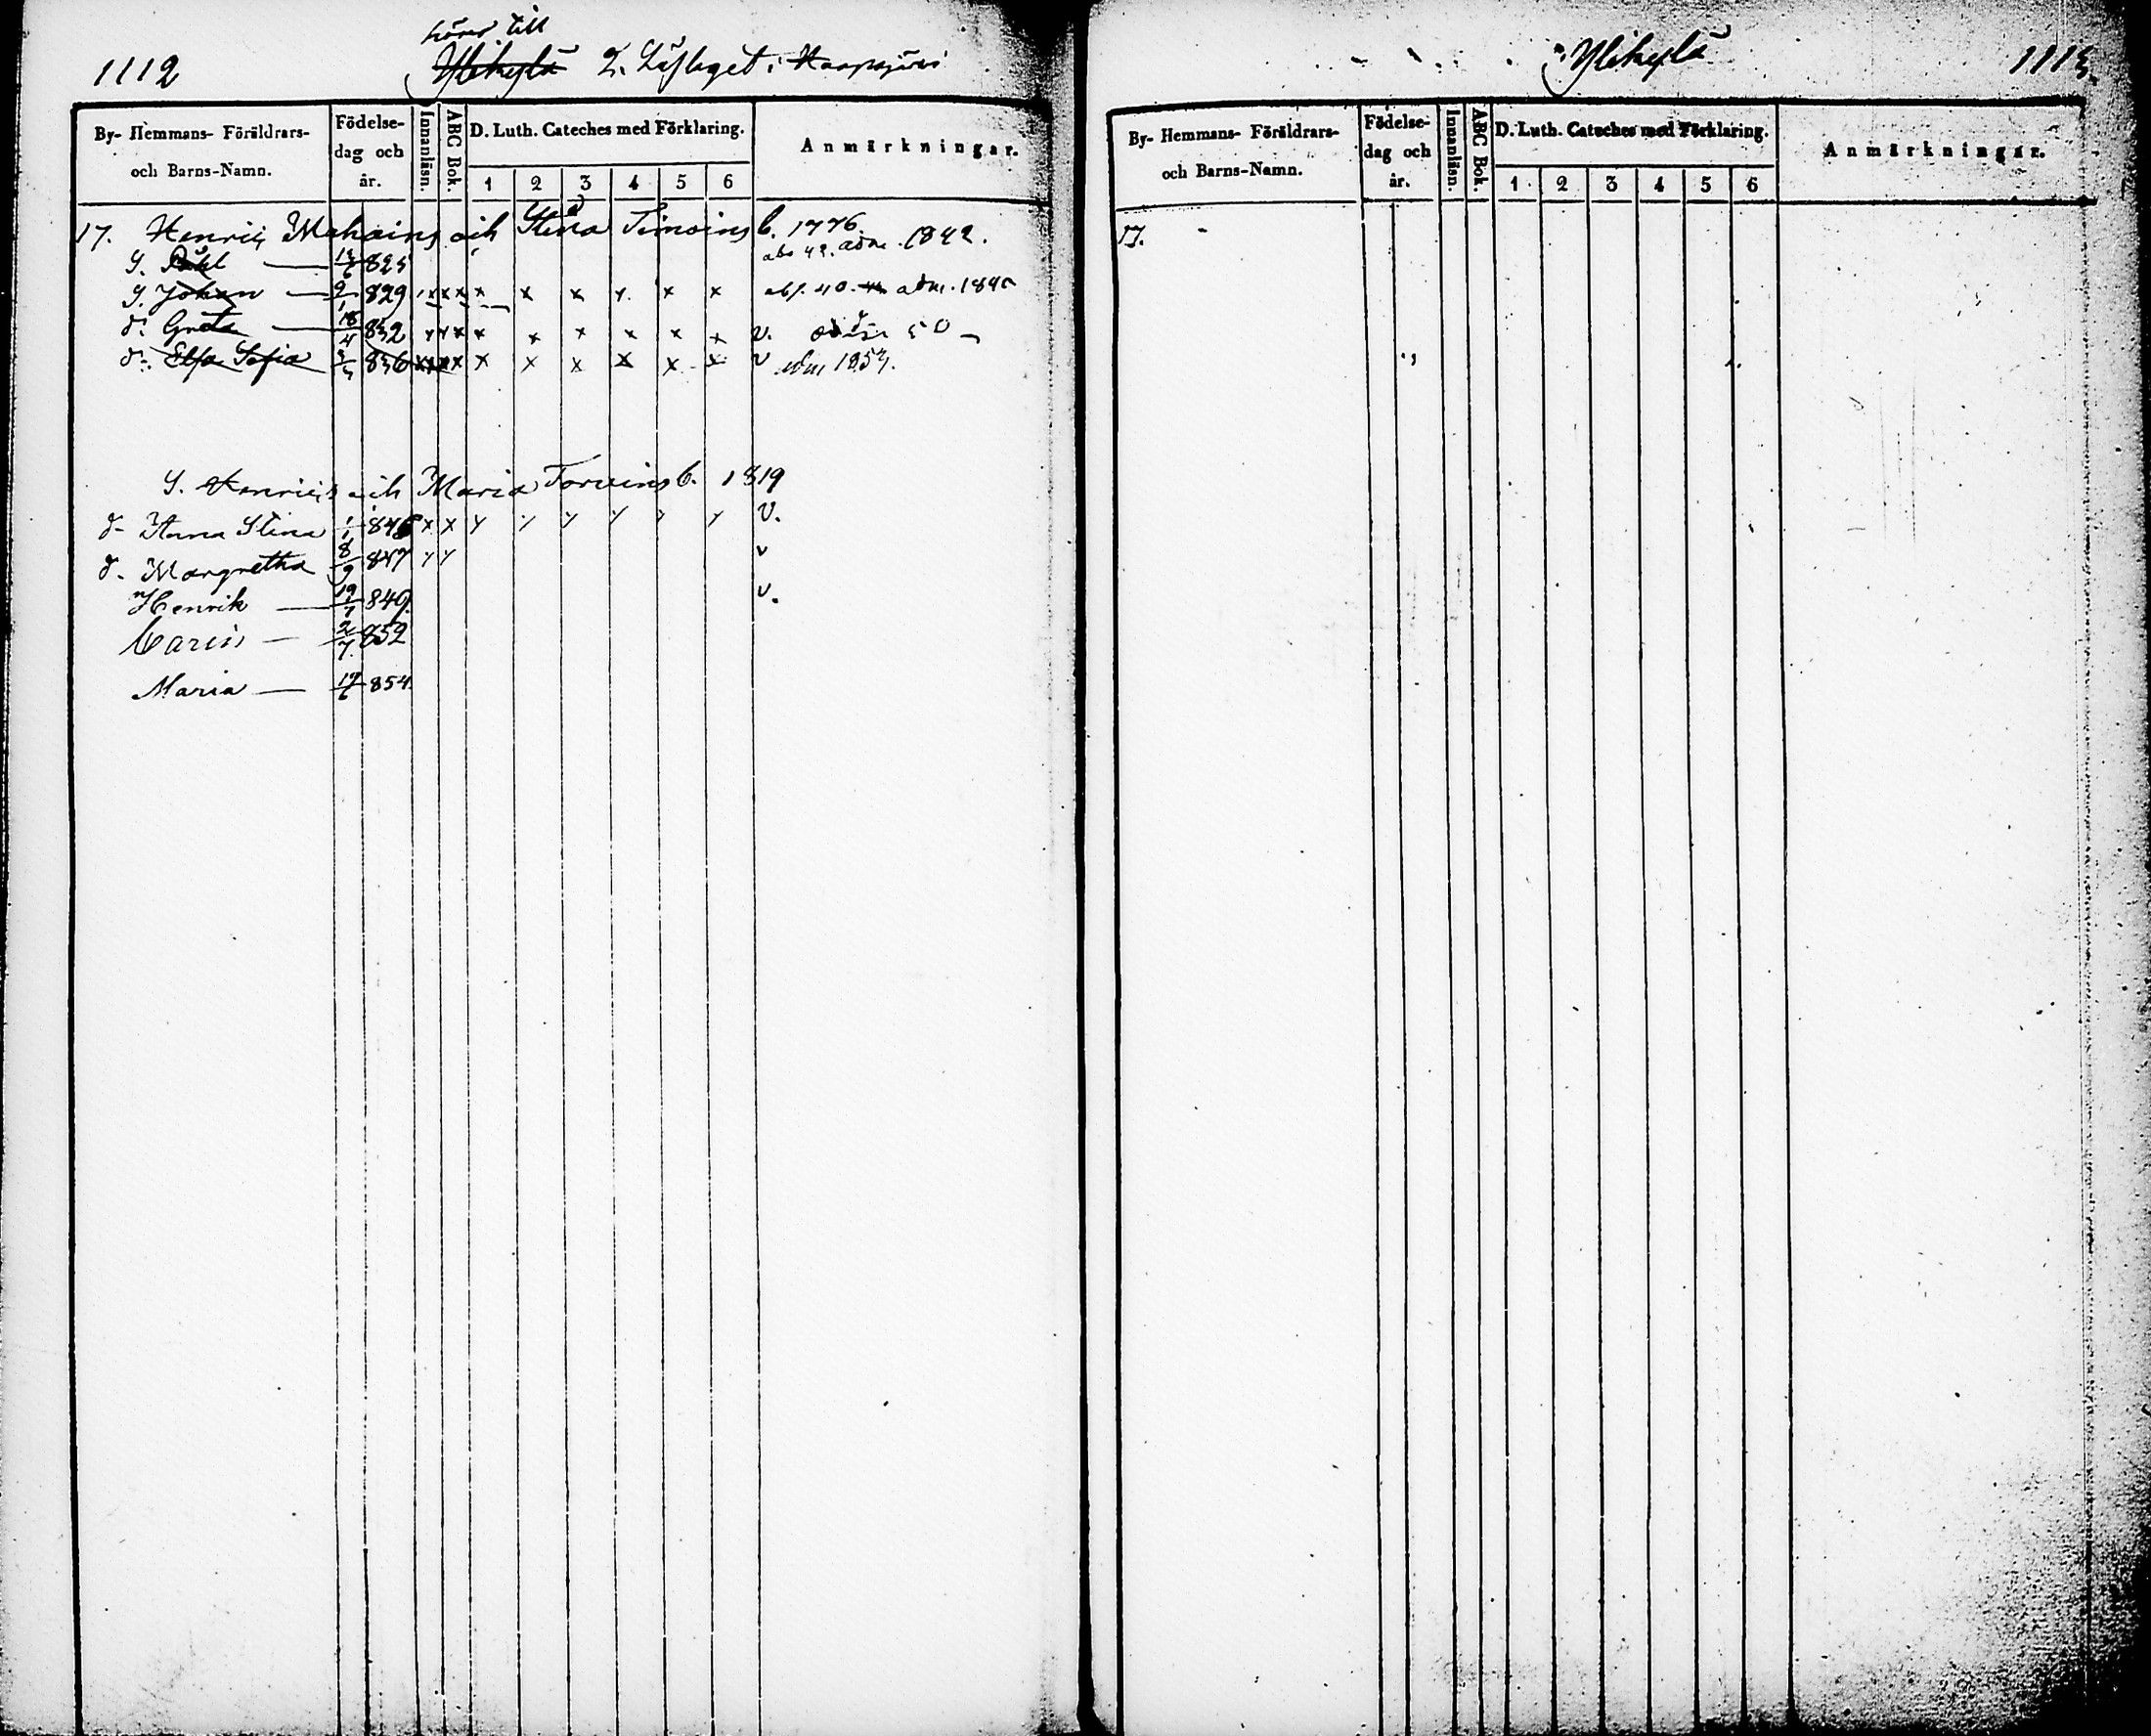 1112
hörer till
Ylikylä 2. Läslaget i Haapajärvi
By- Hemmans- Föräldrars- och Barns-Namn.
Födelse- dag och år.
Innanläsn.
ABC Bok.
D. Luth. Cateches med Förklaring.
1 2 3 4 5 6
Anmärkningar.
17. Henric och Stina Timoins b. 1776.
S. Påhl 825 abs 42. adm. 1842.
S. Johan 9/1 829 x x x x x x x x x abs. 40. adm. 1845
d. Greta 18/4 832 x x x x x x x x x v. 50
d. Elsa Sofia 836 x x x x x x x x x x v adm 1853.
S. Henrics och Maria Torvins b. 1819
d. Anna Stina 1/1 846 x x y y y y y y v.
d. Margretha 8/9 847 y y v
Henrik 19/7 849. v.
Carin 2/7 852
Maria 17/6 854.
Ylikylä
1113.
By- Hemmans- Föräldrars- och Barns-Namn.
Födelse- dag och år.
Innanläsn.
ABC Bok.
D. Luth. Cateches med Förklaring.
1 2 3 4 5 6
Anmärkningar.
17.